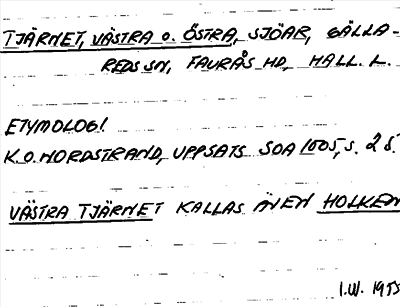 TJÄRNET, VÄSTRA O. ÖSTRA, SJÖAR, GÄLLA-
REDS SN, FAURÅS HD, HALL. L.
ETYMOLOGI
K.O. NORDSTRAND, UPPSATS SOA 1005, S. 2 f.
VÄSTRA TJÄRNET KALLAS ÄVEN HOLKEN
I.W. 1955